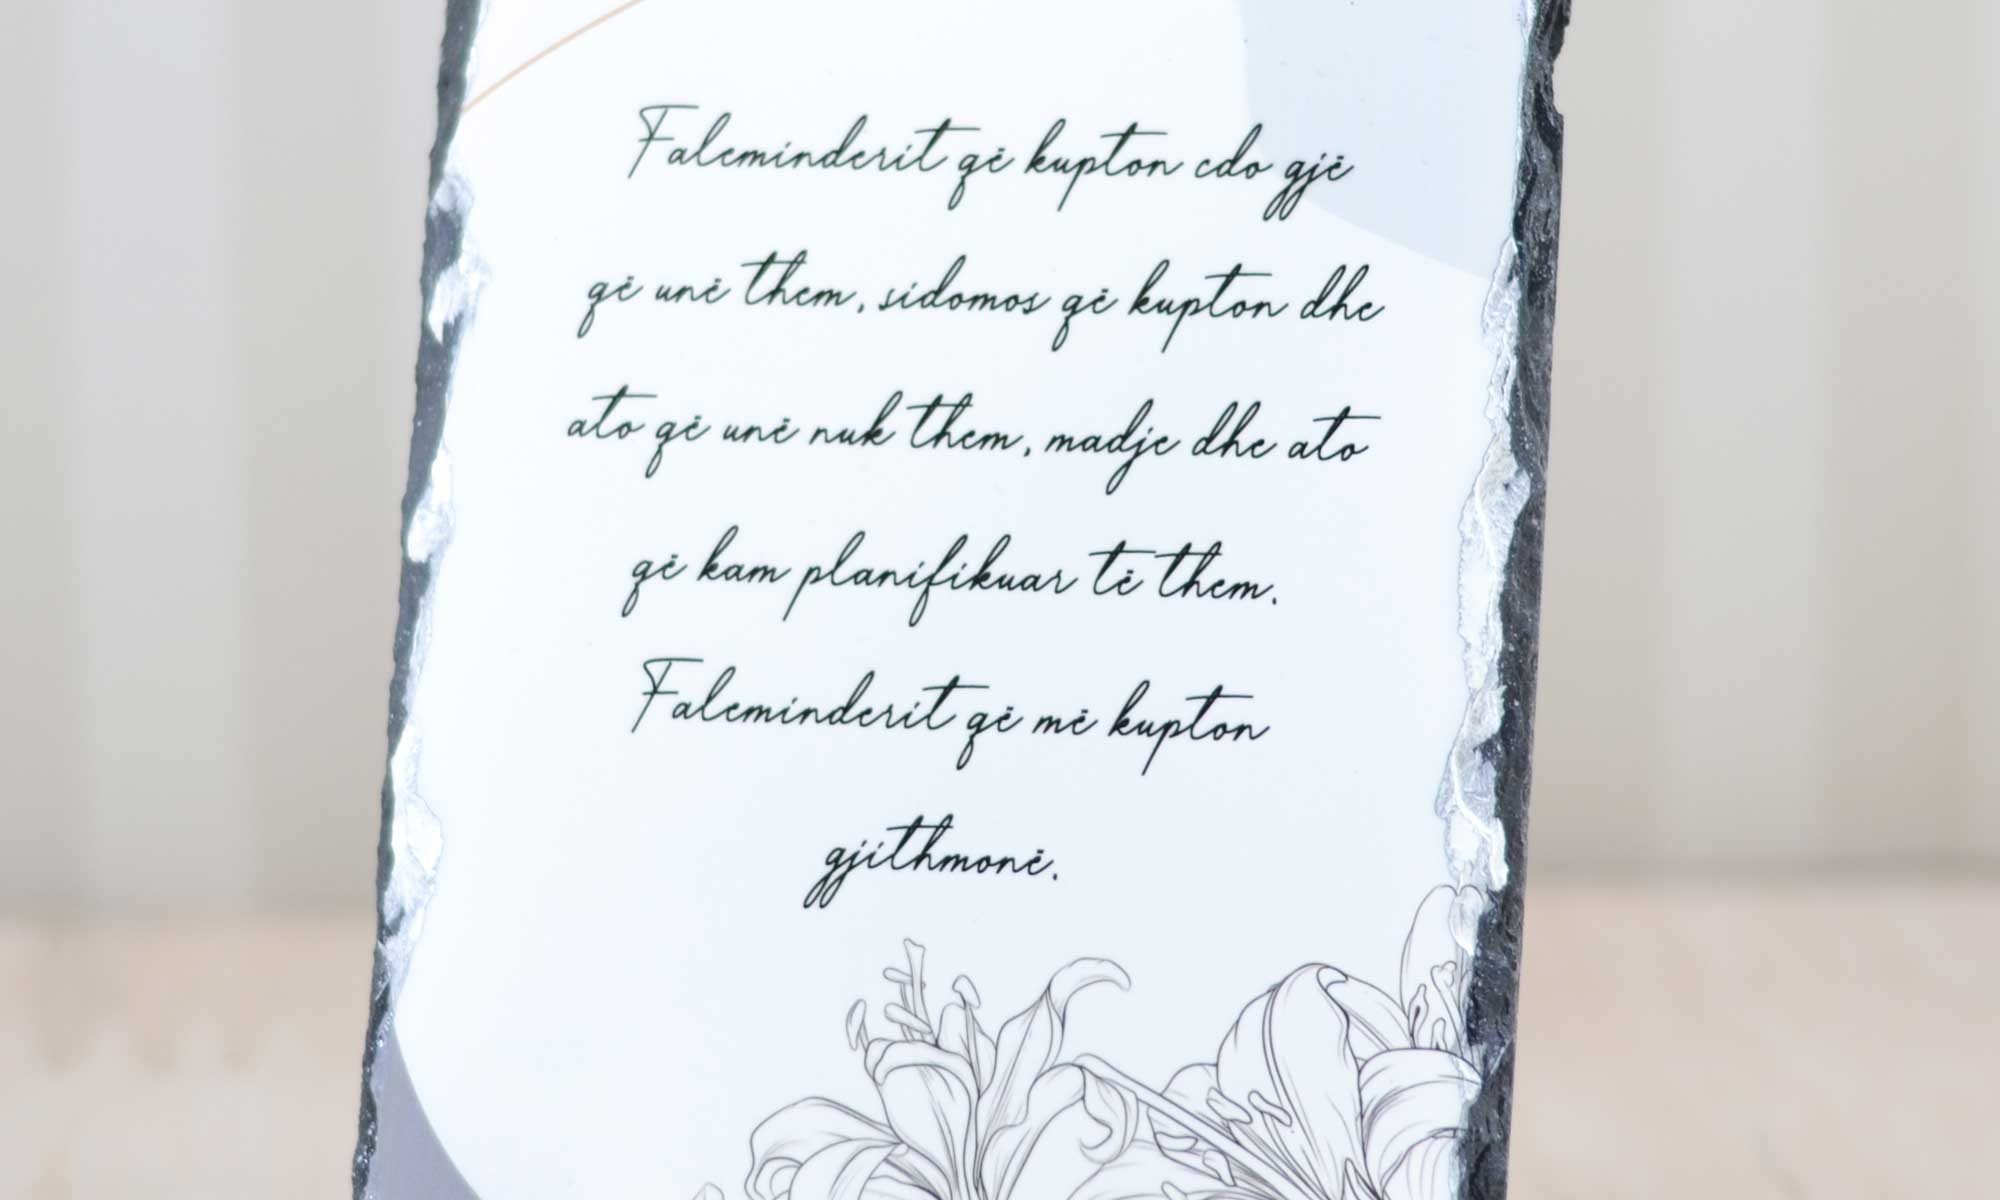 Faleminderit që kupton cdo gjë
që unë them, sidomos që kupton dhe
ato që unë nuk them, madje dhe ato
që kam planifikuar të them.
Faleminderit që më kupton
gjithmonë.